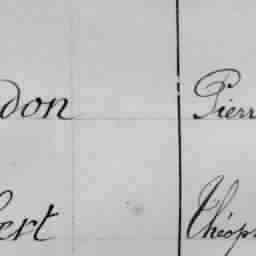 don Pierr
bert Théoph